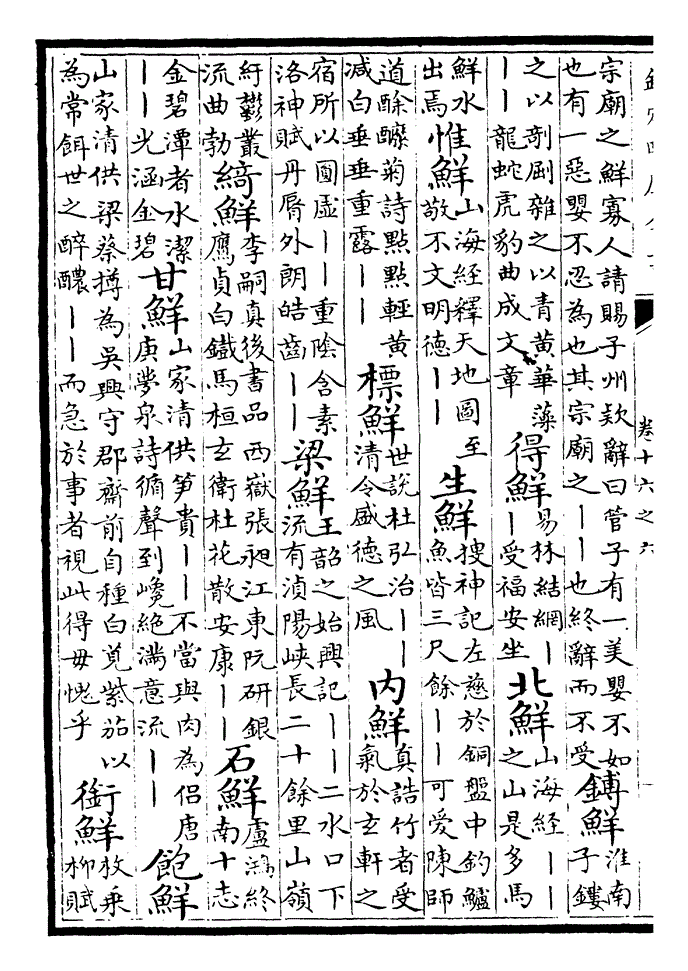 卷十六之六
宗廟之鮮寡人請賜子州欵辭曰管子有一美嬰不如
也有一惡嬰不忍為也其宗廟之丨丨也終辭而不受
鏄鮮
淮南
子鏤
之以剞剧雜之以青黄華藻
丨丨龍蛇虎豹曲成文章
得鮮
易林結網丨
丨受福安坐
北鮮
山海經丨丨
之山是多馬
鮮水
出焉
惟鮮
山海經釋天地圖至
敬不文明德丨丨
生鮮
搜神記左慈於銅盤中釣鱸
魚皆三尺餘丨丨可愛陳師
道酴醾菊詩點點輕黄
減白垂垂重露丨丨
標鮮
世說杜弘治丨丨
清令盛德之風
内鮮
真誥竹者受
氣於玄軒之
宿所以圓虛丨丨重陰含素
洛神賦丹脣外朗皓齒丨丨
梁鮮
王韶之始興記丨丨二水口下
流有湞陽峽長二十餘里山嶺
紆鬱叢
流曲勃
綺鮮
李嗣真後書品西嶽張昶江東阮研銀
鷹貞白鐵馬桓玄衛杜花散安康丨丨
石鮮
盧鴻終
南十志
金碧潭者水潔
丨丨光涵金碧
甘鮮
山家清供笋貴丨丨不當與肉為侣唐
庚夢泉詩循聲到巉絶滿意流丨丨
飽鮮
山家清供梁蔡撙為吳興守郡齋前自種白莧紫茄以
為常餌世之醉醲丨丨而急於事者視此得毋愧乎
銜鮮
枚乗
柳賦